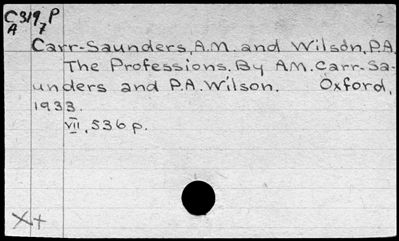 C319,P 2
A 7
Carr-Saunders, A.M. and Wilson, P.A.
The Professions. By A.M. Carr-Sa-
unders and P.A. Wilson. Oxford,
1933.
VII, 536 p.
X+